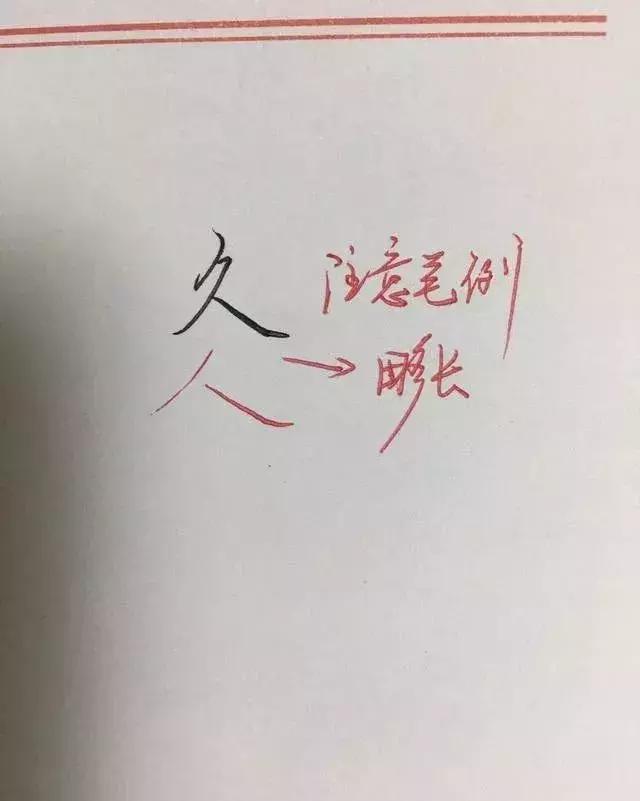 久 注意笔例
人→略长